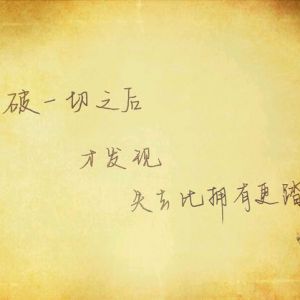 破一切之后
才发现
失去比拥有更踏